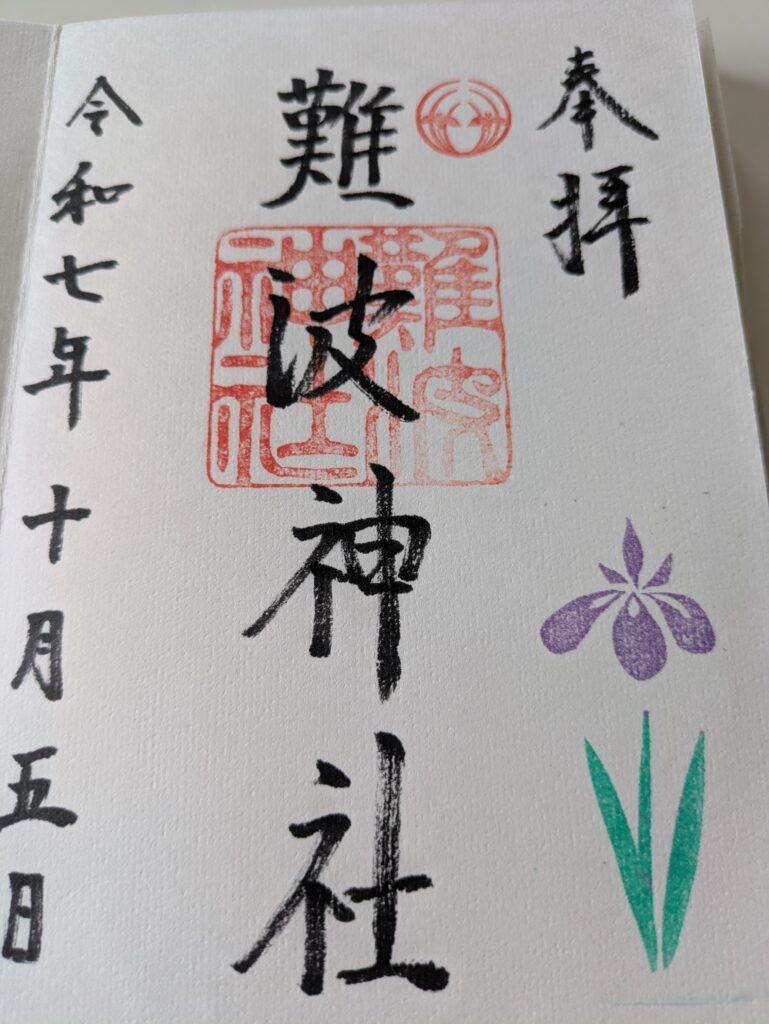 奉拝
難波神社
難波
神社
令和七年十月五日